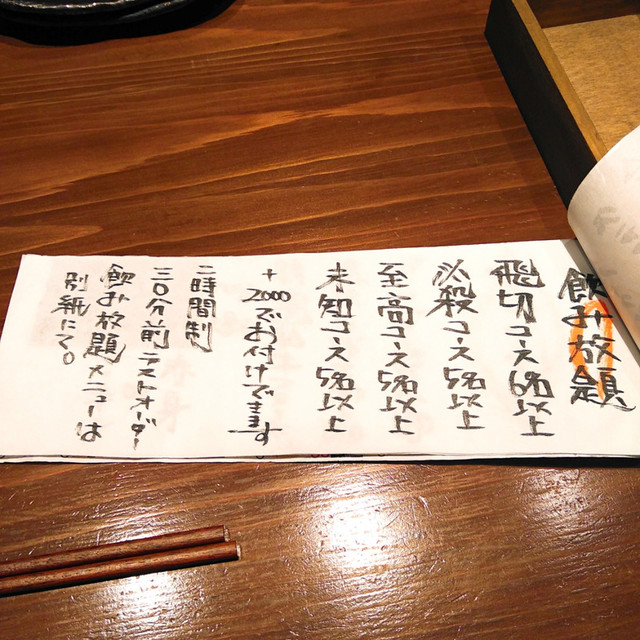 飲み放題
飛切コース6名以上
必殺コース5名以上
至高コース5名以上
未知コース5名以上
+2000でお付けできます
二時間制
三〇分前ラストオーダー
飲み放題メニューは
別紙にて。